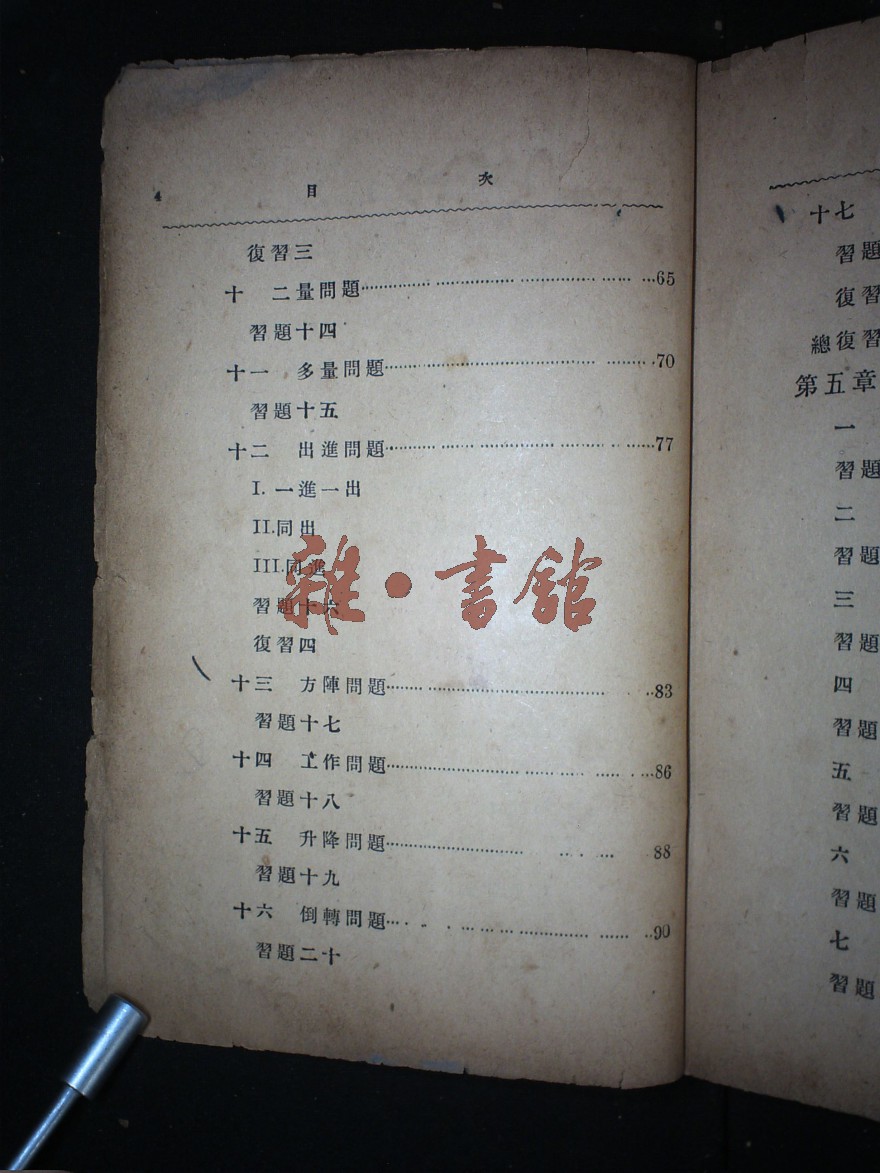 4 目 次
復習三
十 二量問題 65
習題十四
十一 多量問題 70
習題十五
十二 出進問題 77
I. 一進一出
II.同出
III.同進
習題十六
復習四
十三 方陣問題 83
習題十七
十四 工作問題 86
習題十八
十五 升降問題 88
習題十九
十六 倒轉問題 90
習題二十
雜·書館
十七
習題
復習
總復習
第五章
一
習題
二
習題
三
習題
四
習題
五
習題
六
習題
七
習題